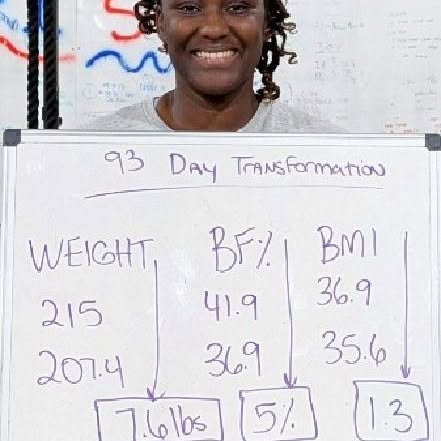 93 Day Transformation
WEIGHT BF% BMI
215 41.9 36.9
207.4 36.9 35.6
7.6 lbs 5% 1.3